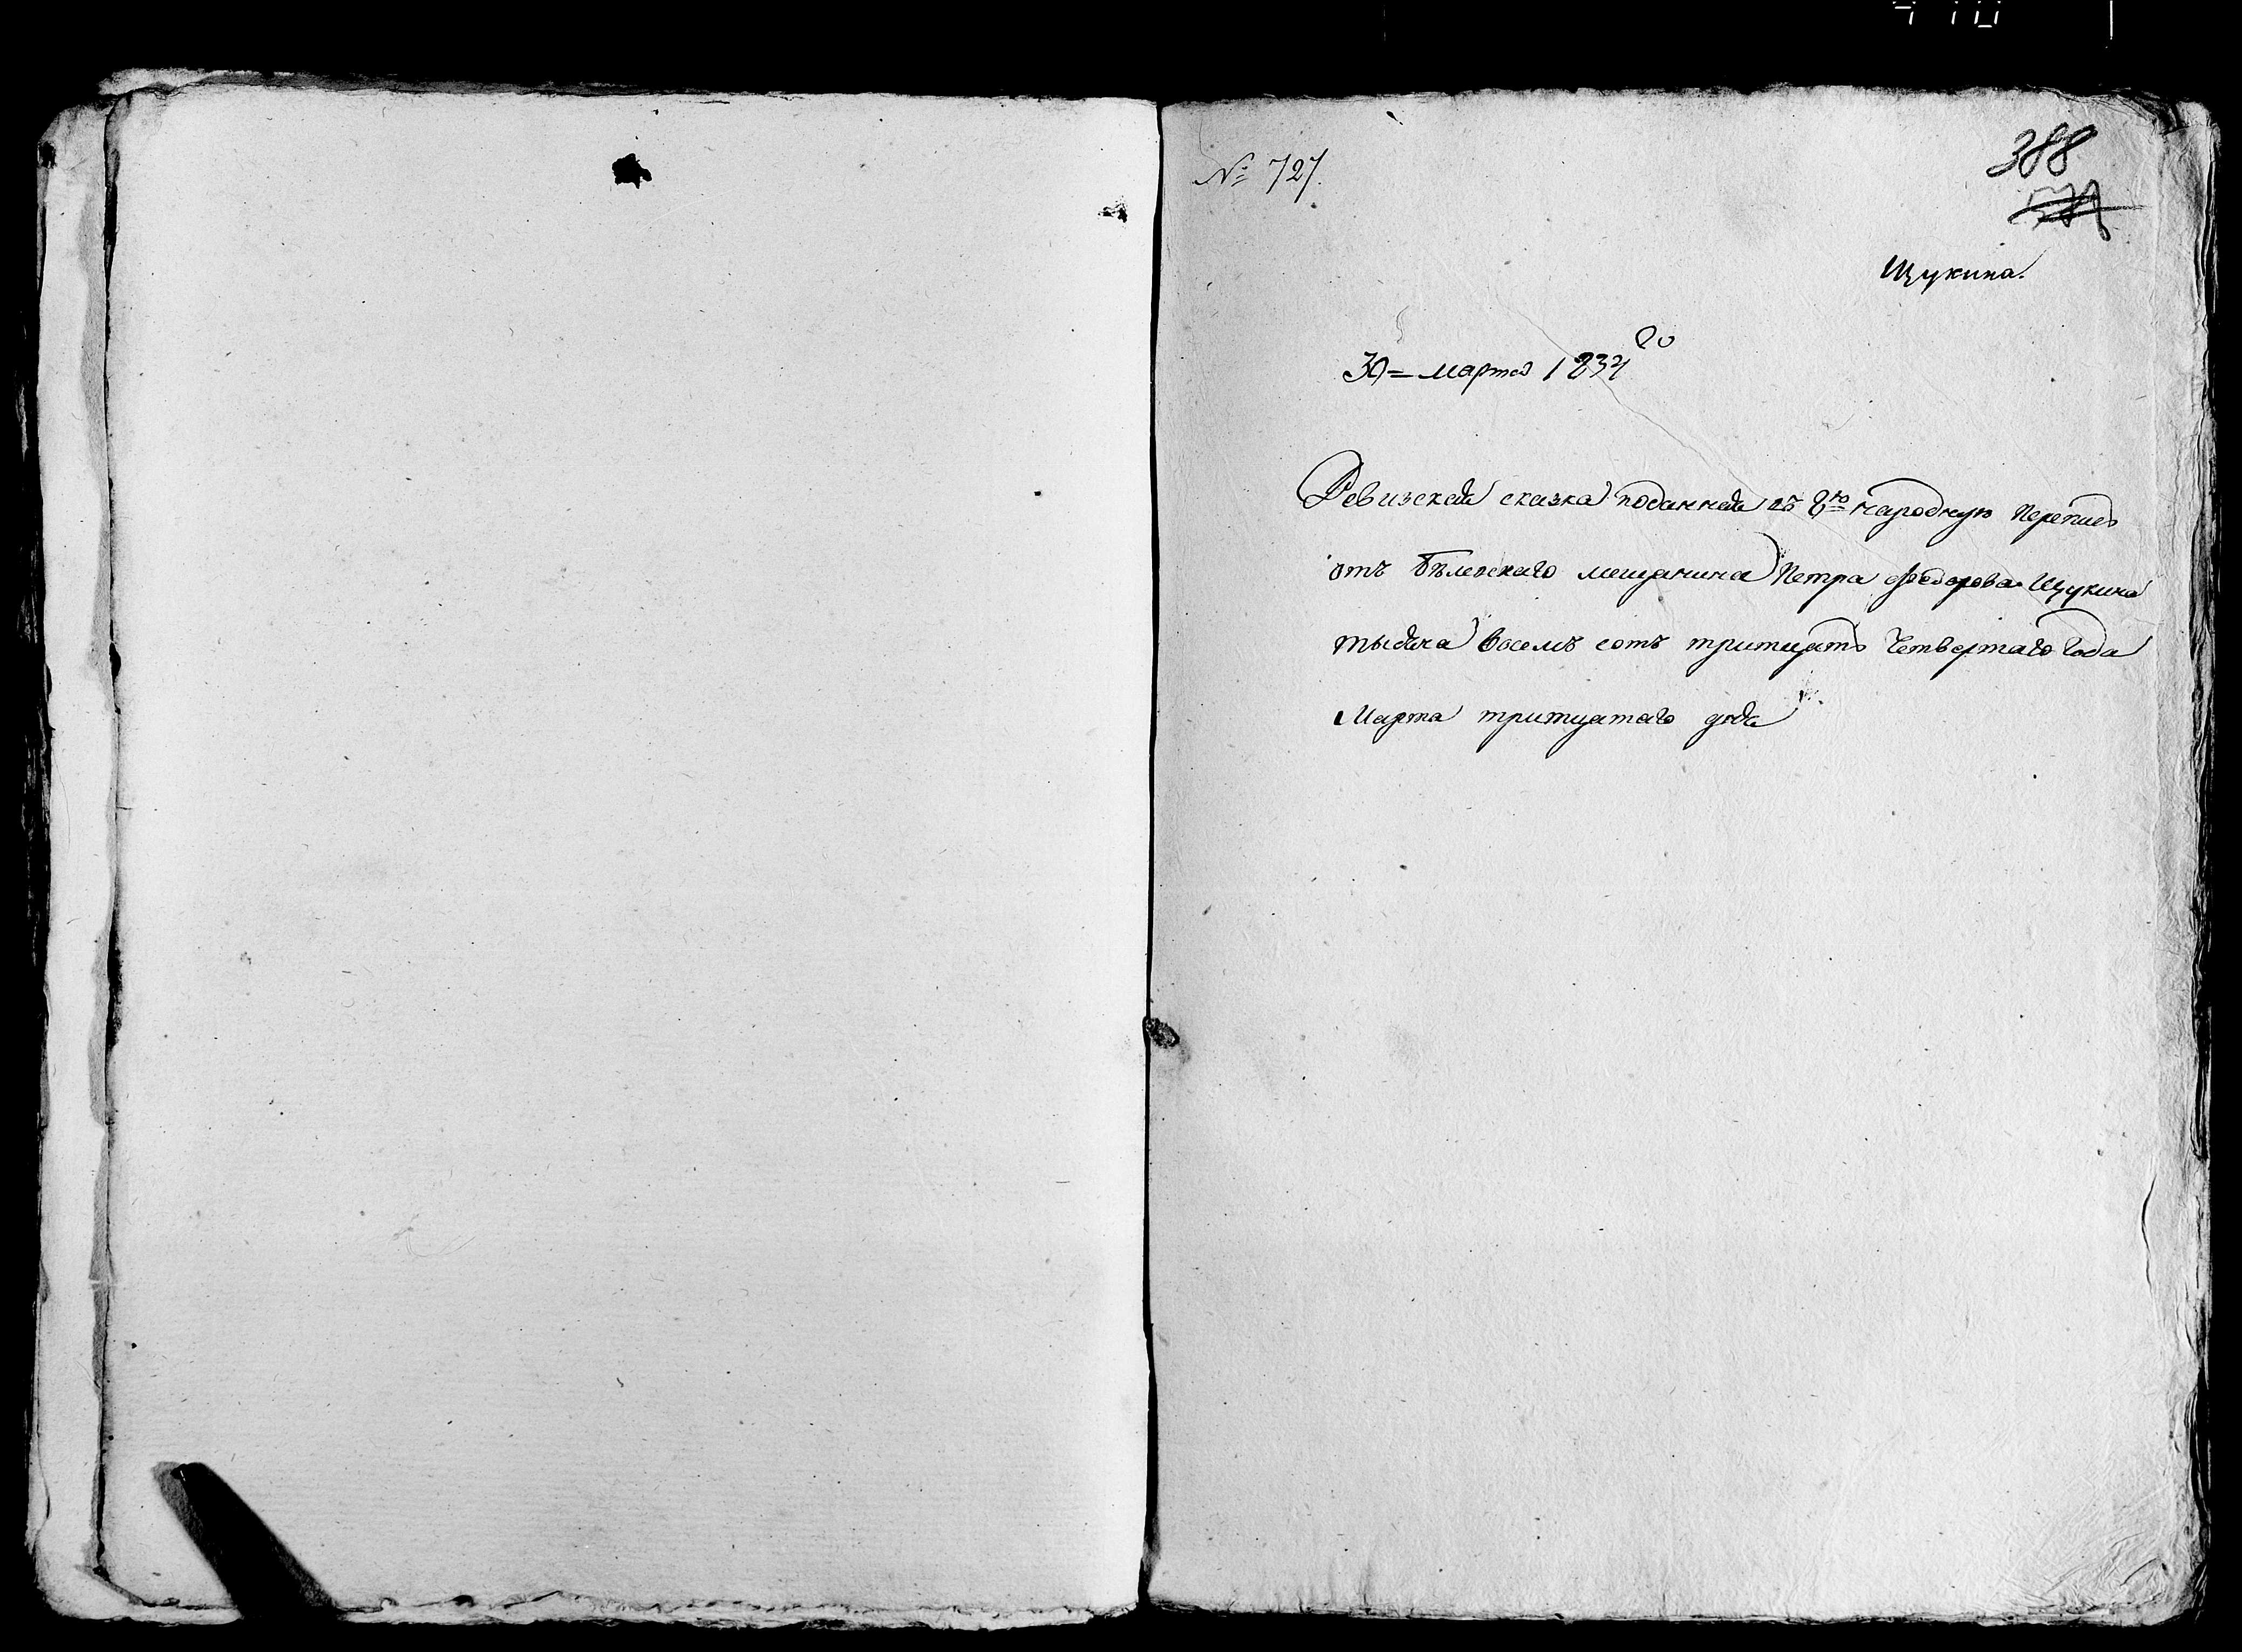 № 727.
388
Щукина.
30= марта 1834го
Ревизская сказка поданная въ 8ю народную перепись
отъ Бѣлевскаго мещанина Петра Федорова Щукина
тысяча восемъ сотъ тритцать Четвертаго Года
Марта тритцатаго дня